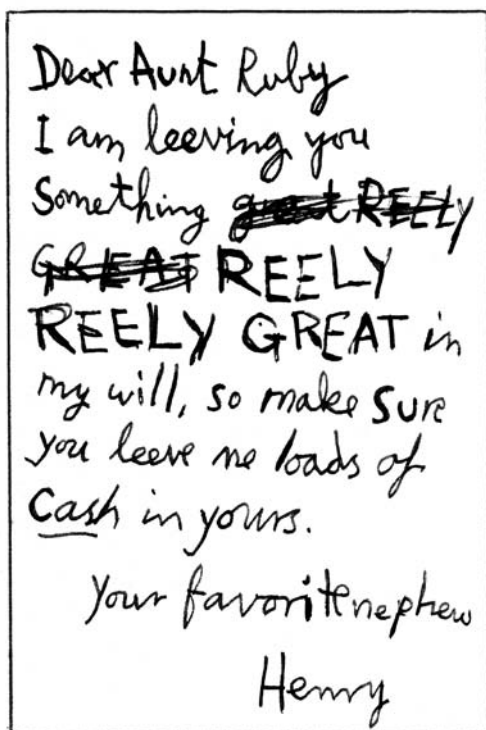 Dear Aunt Ruby
I am leeving you
Something great REELY
GREAT REELY
REELY GREAT in
my will, so make sure
you leeve me loads of
Cash in yours.
Your favorite nephew
Henry